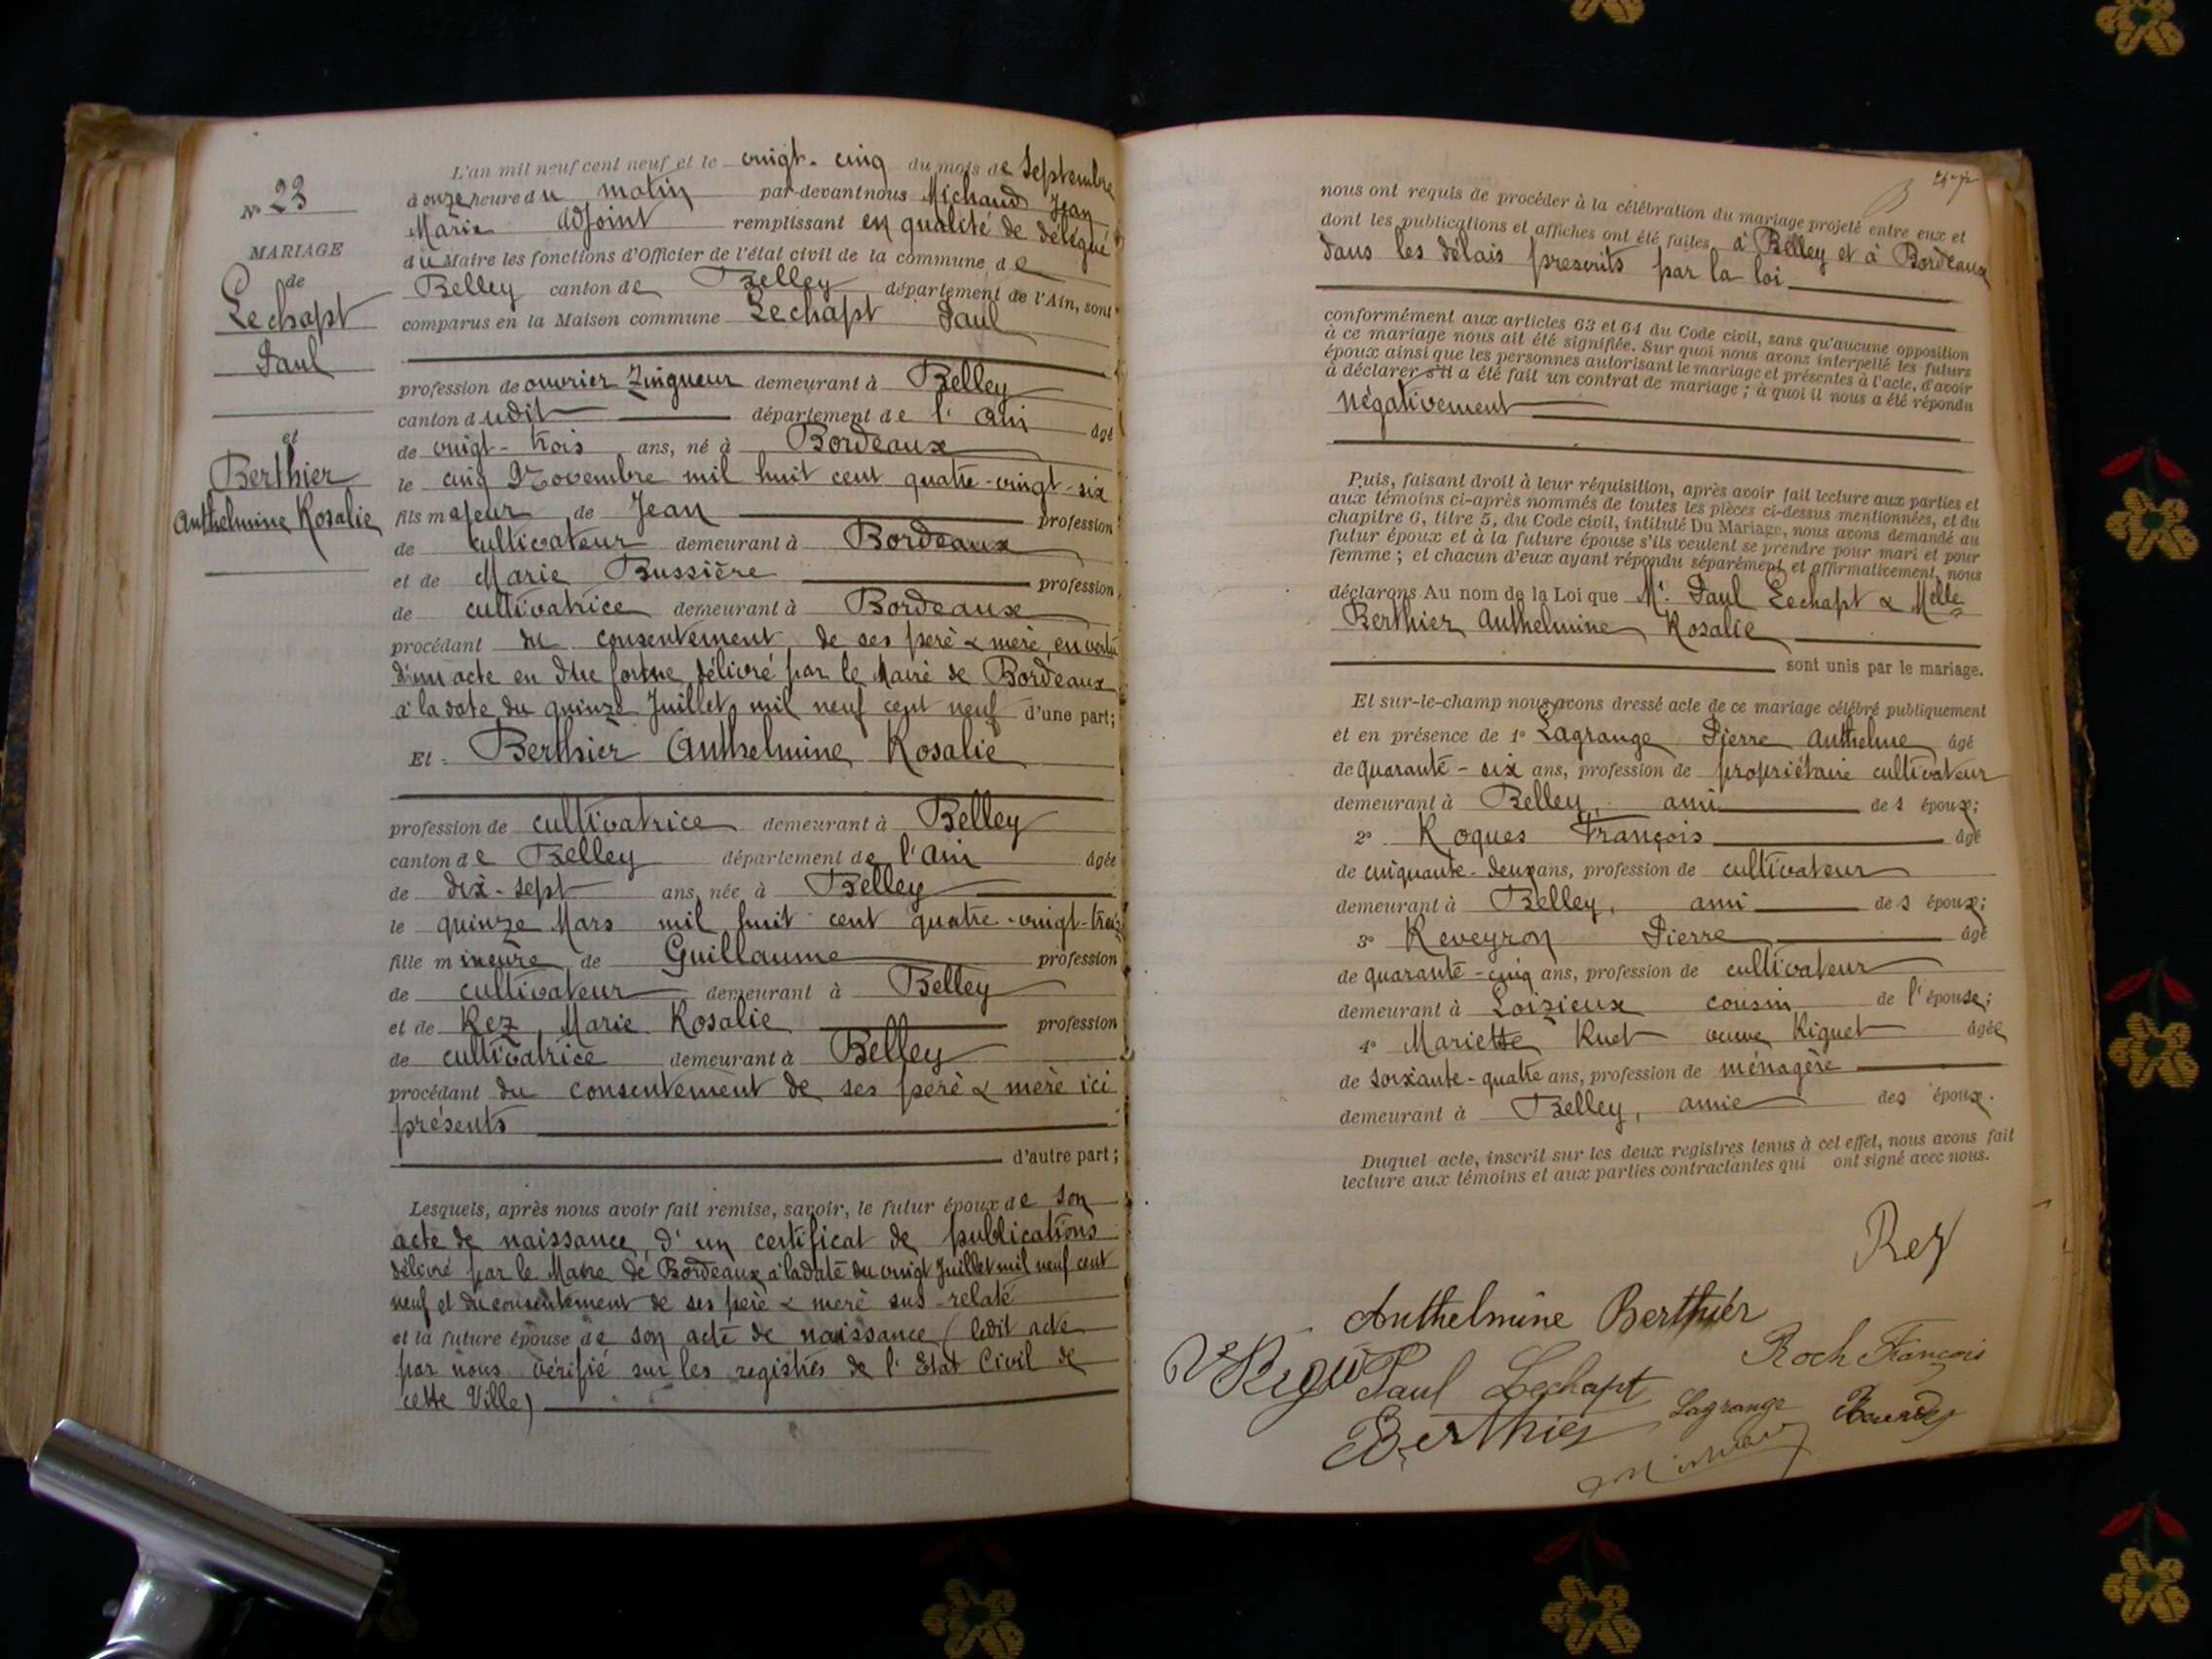 N° 23
MARIAGE
de
Lechapt
Paul
et
Berthier
Anthelmine Rosalie
L'an mil neuf cent neuf et le vingt-cinq du mois de Septembre
à onze heure du matin par-devant nous Michaud Jean
Marie adjoint remplissant en qualité de délégué
du Maire les fonctions d'Officier de l'état civil de la commune de
Belley canton de Belley département de l'Ain, sont
comparus en la Maison commune Lechapt Paul
profession de ouvrier zingueur demeurant à Belley
canton dudit département de l'Ain âgé
de vingt-trois ans, né à Bordeaux
le cinq Novembre mil huit cent quatre-vingt-six
fils majeur de Jean profession
de cultivateur demeurant à Bordeaux
et de Marie Bussière profession
de cultivatrice demeurant à Bordeaux
procédant du consentement de ses père & mère, en vertu
d'un acte en due forme délivré par le Maire de Bordeaux
à la date du quinze Juillet mil neuf cent neuf d'une part;
Et Berthier Anthelmine Rosalie
profession de cultivatrice demeurant à Belley
canton de Belley département de l'Ain âgée
de dix-sept ans, née à Belley
le quinze Mars mil huit cent quatre-vingt-treize
fille mineure de Guillaume profession
de cultivateur demeurant à Belley
et de Rez, Marie Rosalie profession
de cultivatrice demeurant à Belley
procédant du consentement de ses père & mère ici
présents
d'autre part;
Lesquels, après nous avoir fait remise, savoir, le futur époux de son
acte de naissance, d'un certificat de publications
délivré par le Maire de Bordeaux à la date du vingt Juillet mil neuf cent
neuf et du consentement de ses père & mère sus-relaté
et la future épouse de son acte de naissance (ledit acte
par nous vérifié sur les registres de l'Etat Civil de
cette Ville)
nous ont requis de procéder à la célébration du mariage projeté entre eux et
dont les publications et affiches ont été faites à Belley et à Bordeaux
dans les délais prescrits par la loi
conformément aux articles 63 et 64 du Code civil, sans qu'aucune opposition
à ce mariage nous ait été signifiée. Sur quoi nous avons interpellé les futurs
époux ainsi que les personnes autorisant le mariage et présentes à l'acte, d'avoir
à déclarer s'il a été fait un contrat de mariage; à quoi il nous a été répondu
négativement
Puis, faisant droit à leur réquisition, après avoir fait lecture aux parties et
aux témoins ci-après nommés de toutes les pièces ci-dessus mentionnées, et du
chapitre 6, titre 5, du Code civil, intitulé Du Mariage, nous avons demandé au
futur époux et à la future épouse s'ils veulent se prendre pour mari et pour
femme; et chacun d'eux ayant répondu séparément et affirmativement, nous
déclarons Au nom de la Loi que Mr. Paul Lechapt & Melle
Berthier Anthelmine Rosalie
sont unis par le mariage.
Et sur-le-champ nous avons dressé acte de ce mariage célébré publiquement
et en présence de 1° Lagrange Pierre Anthelme âgé
de quarante-six ans, profession de propriétaire cultivateur
demeurant à Belley, ami des époux;
2° Roques François âgé
de cinquante-deux ans, profession de cultivateur
demeurant à Belley, ami des époux;
3° Reveyron Pierre âgé
de quarante-cinq ans, profession de cultivateur
demeurant à Loizieux cousin de l'épouse;
4° Mariette Ruet veuve Riguet âgée
de soixante-quatre ans, profession de ménagère
demeurant à Belley, amie des époux.
Duquel acte, inscrit sur les deux registres tenus à cet effet, nous avons fait
lecture aux témoins et aux parties contractantes qui ont signé avec nous.
Rey
Anthelmine Berthier
Roch François
Paul Lechapt
Lagrange
Berthier